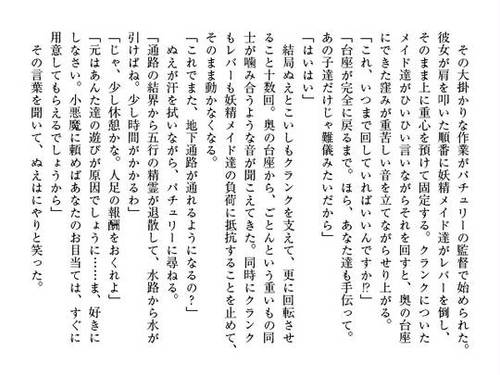 その大掛かりな作業がパチュリーの監督で始められた。
彼女が肩を叩いた順番に妖精メイド達がレバーを倒し、
そのまま上に重心を預けて固定する。クランクについた
メイド達がひいひい言いながらそれを回すと、奥の台座
にできた窪みが重苦しい音を立てながらせり上がる。
「これ、いつまで回していればいいんですか!?」
「台座が完全に戻るまで。ほら、あなた達も手伝って。
あの子達だけじゃ難儀みたいだから」
「はいはい」
結局ぬえとこいしもクランクを支えて、更に回転させ
ること十数回。奥の台座から、ごとんという重いもの同
士が噛み合うような音が聞こえてきた。同時にクランク
もレバーも妖精メイド達の負荷に抵抗することを止めて、
そのまま動かなくなる。
「これでまた、地下通路が通れるようになるの?」
ぬえが汗を拭いながら、パチュリーに尋ねる。
「通路の結界から五行の精霊が退散して、水路から水が
引けばね。少し時間がかかるわ」
「じゃ、少し休憩かな。人足の報酬をおくれよ」
「元はあんた達の遊びが原因でしょうに……ま、好きに
しなさい。小悪魔に頼めばあなたのお目当ては、すぐに
用意してもらえるでしょうから」
その言葉を聞いて、ぬえはにやりと笑った。